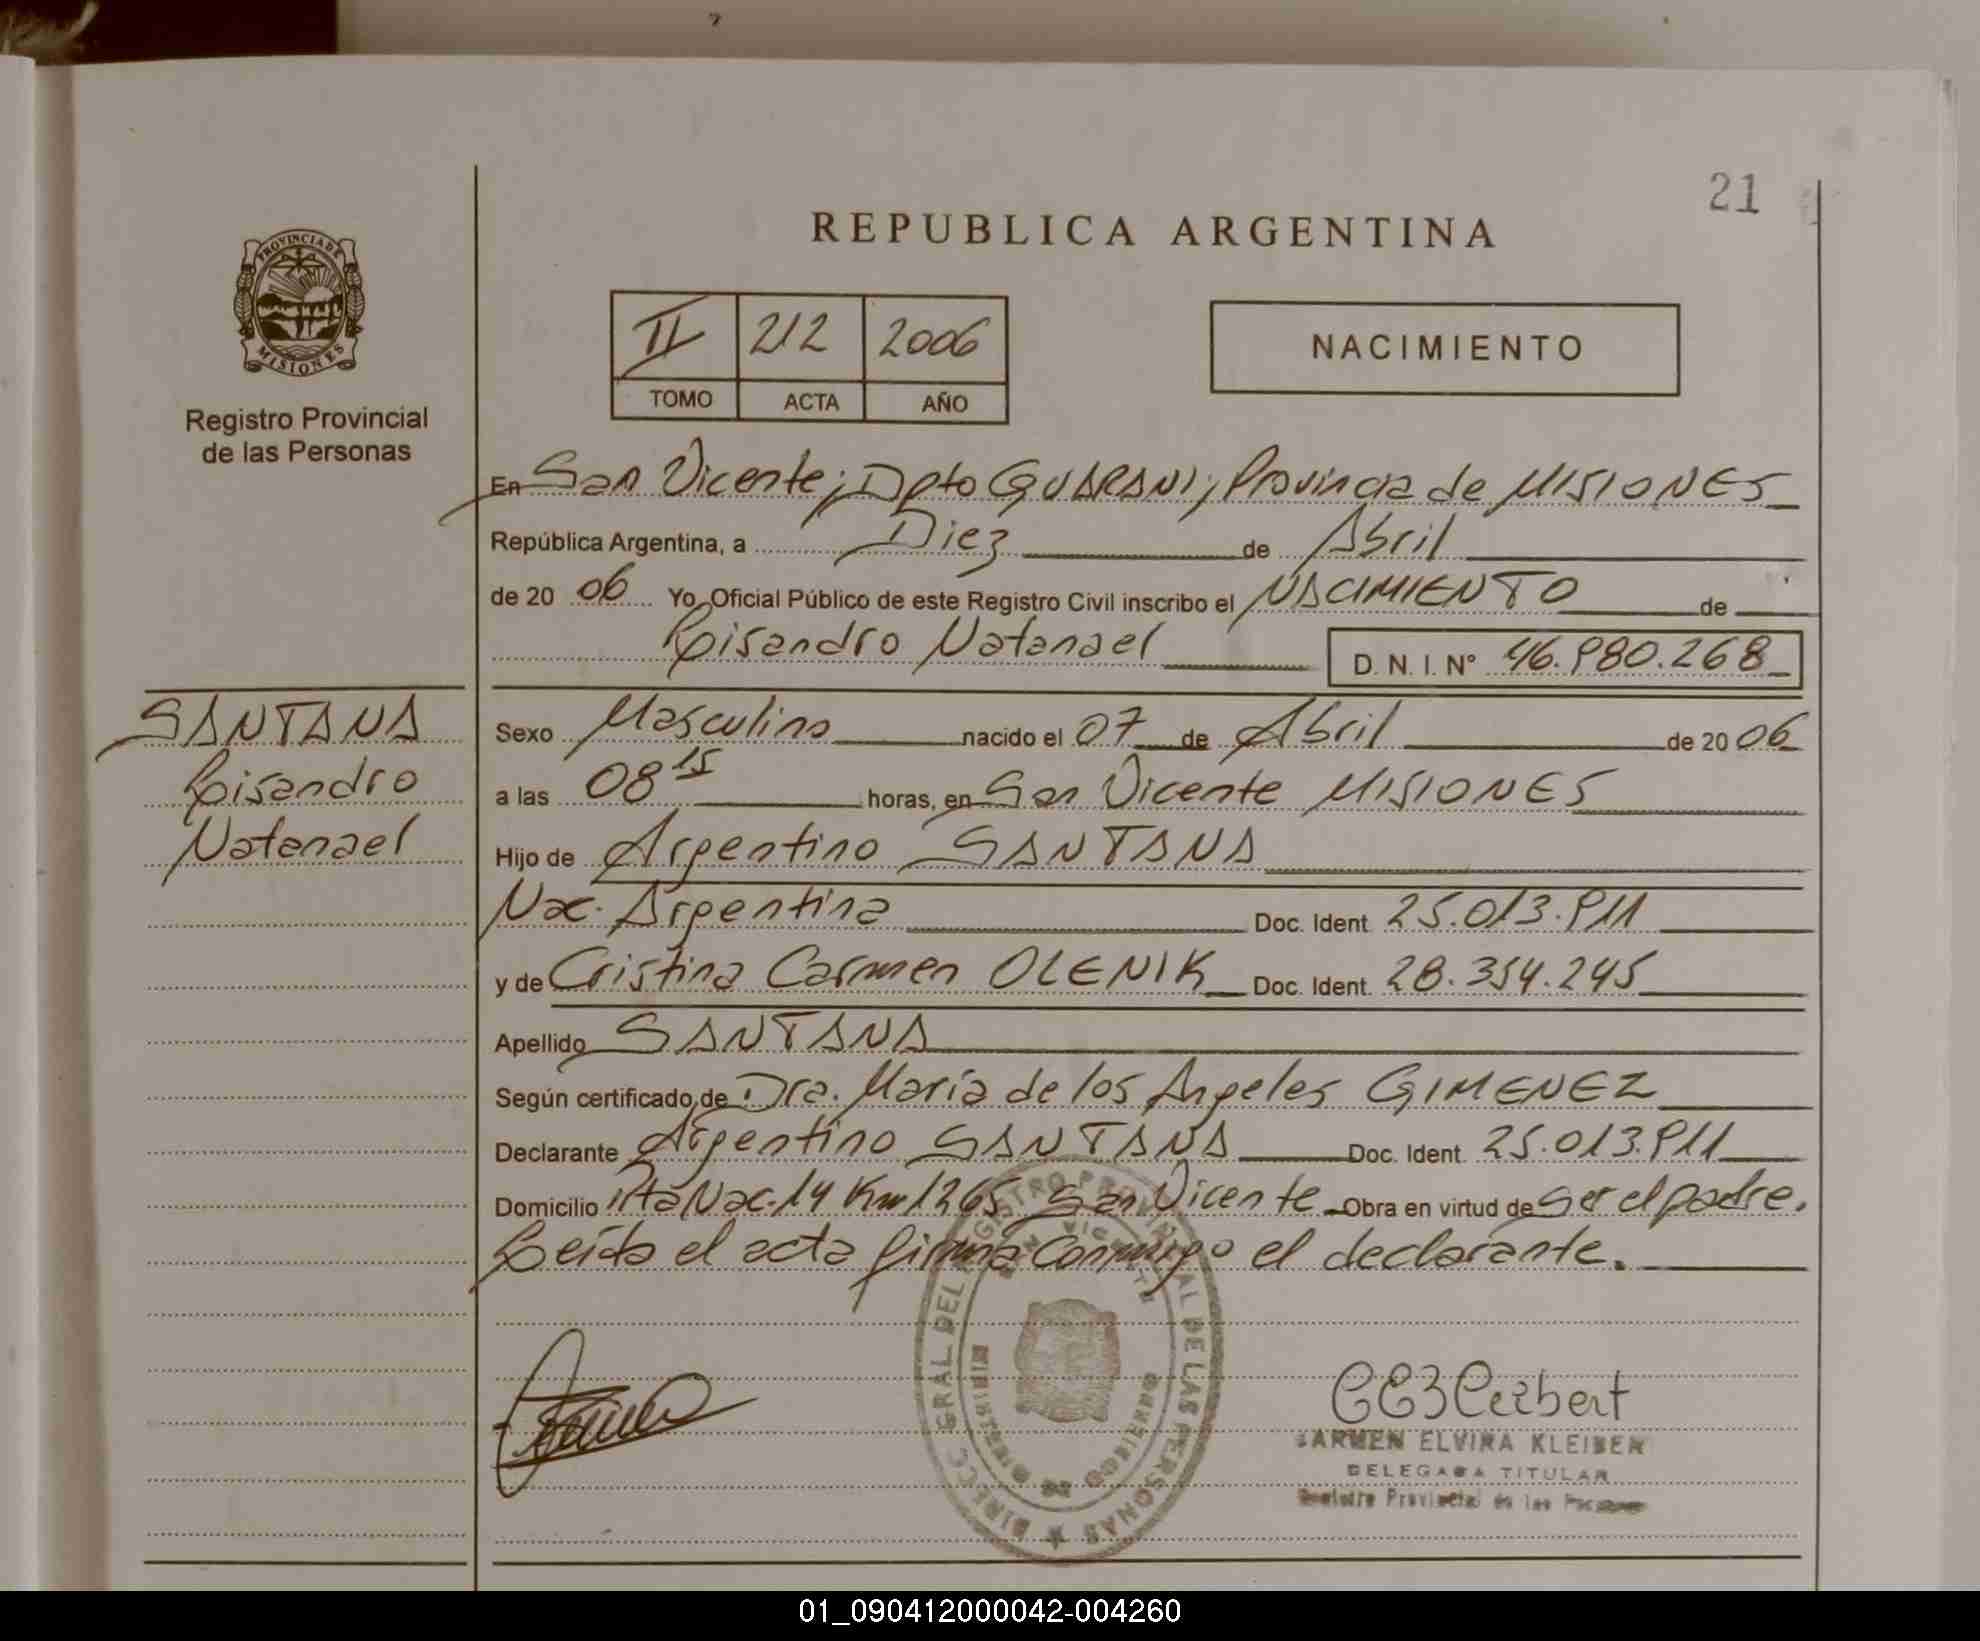 21
REPUBLICA ARGENTINA
PROVINCIA DE
MISIONES
Registro Provincial
de las Personas
II 212 2006
TOMO ACTA AÑO
NACIMIENTO
En San Vicente; Dpto GUARANI; Provincia de MISIONES
República Argentina, a Diez de Abril
de 20 06 Yo, Oficial Público de este Registro Civil inscribo el NACIMIENTO de
Lisandro Natanael D. N. I. Nº 46.980.268
SANTANA
Lisandro
Natanael
Sexo Masculino nacido el 07 de Abril de 20 06
a las 08 15 horas, en San Vicente MISIONES
Hijo de Argentino SANTANA
Nac. Argentina Doc. Ident. 25.013.911
y de Cristina Carmen OLENIK Doc. Ident. 28.354.245
Apellido SANTANA
Según certificado, de Dra. María de los Angeles GIMENEZ
Declarante Argentino SANTANA Doc. Ident. 25.013.911
Domicilio Rta Nac. 14 Km 1265 San Vicente Obra en virtud de ser el padre.
Leída el acta firma conmigo el declarante.
DIRECC. GRAL DEL REGISTRO PROVINCIAL DE LAS PERSONAS
SAN VICENTE
CARMEN ELVIRA KLEIBER
DELEGADA TITULAR
Registro Provincial de las Personas
01_090412000042-004260